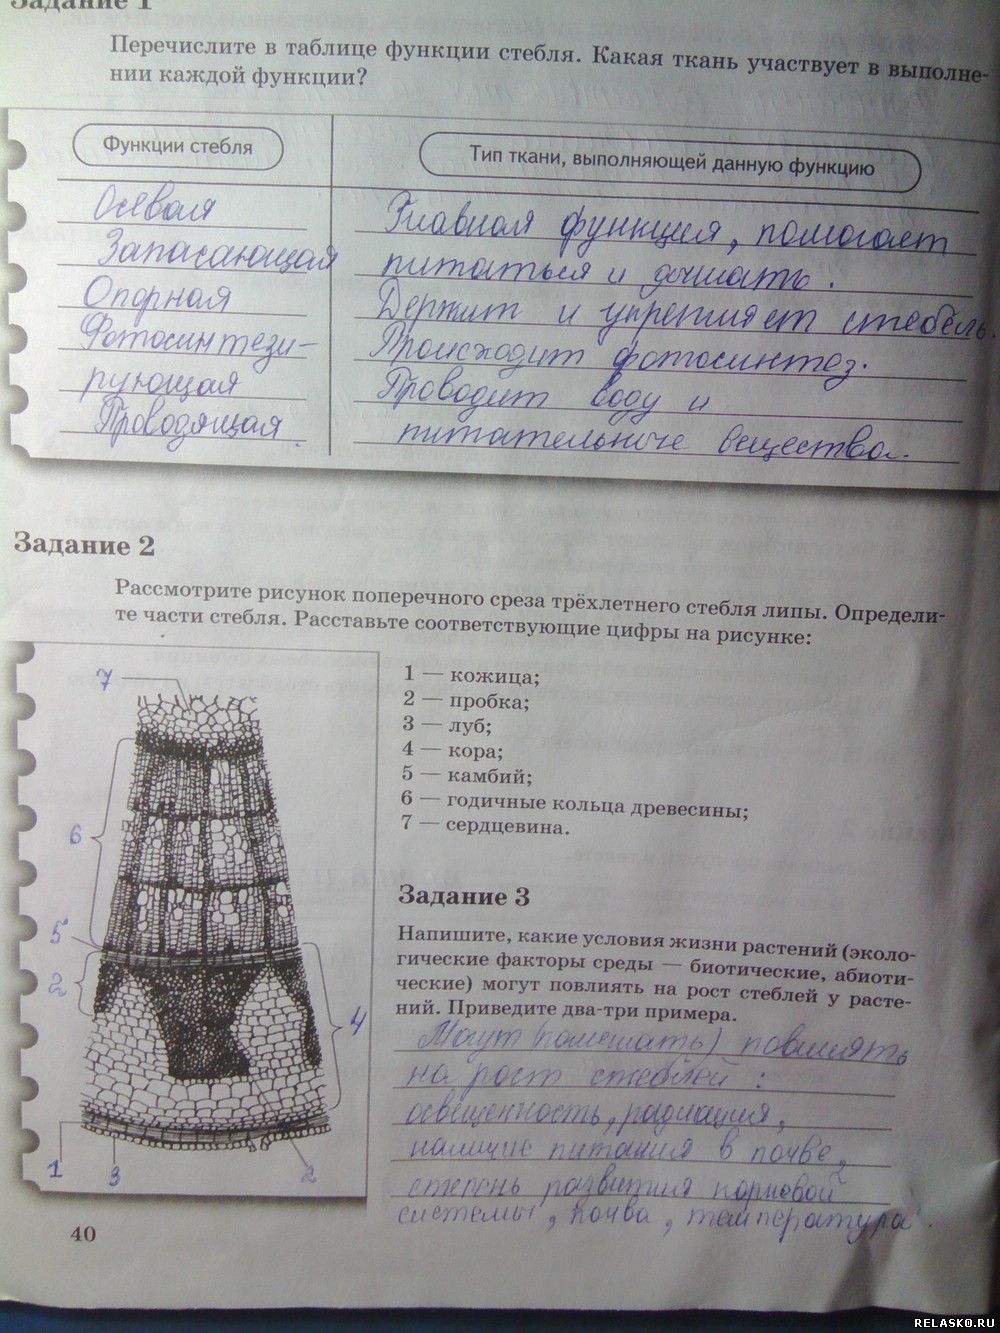 Задание 1
Перечислите в таблице функции стебля. Какая ткань участвует в выполне-
нии каждой функции?
Функции стебля
Тип ткани, выполняющей данную функцию
Осевая
Главная функция, помогает
Запасающая
питаться и дышать.
Опорная
Держит и укрепляет стебель.
Фотосинтези-
Происходит фотосинтез.
рующая
Проводит воду и
Проводящая.
питательные вещества.
Задание 2
Рассмотрите рисунок поперечного среза трёхлетнего стебля липы. Определи-
те части стебля. Расставьте соответствующие цифры на рисунке:
1 — кожица;
2 — пробка;
3 — луб;
4 — кора;
5 — камбий;
6 — годичные кольца древесины;
7 — сердцевина.
7
6
5
2
4
1
3
2
Задание 3
Напишите, какие условия жизни растений (эколо-
гические факторы среды — биотические, абиоти-
ческие) могут повлиять на рост стеблей у расте-
ний. Приведите два-три примера.
Могут (помешать) повлиять
на рост стеблей:
освещенность, радиация,
наличие питания в почве,
степень развития корневой
системы, почва, температура.
40
RELASKO.RU